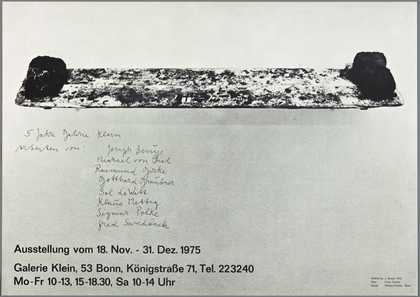 5 Jahre Galerie Klein
Arbeiten von: Joseph Beuys
Michael von
Raimund Girke
Gotthard Graubner
Sol LeWitt
Klaus Mettig
Sigmar Polke
Fred Sandback
Ausstellung vom 18. Nov. - 31. Dez. 1975
Galerie Klein, 53 Bonn, Königstraße 71, Tel. 223240
Mo-Fr 10-13, 15-18.30, Sa 10-14 Uhr